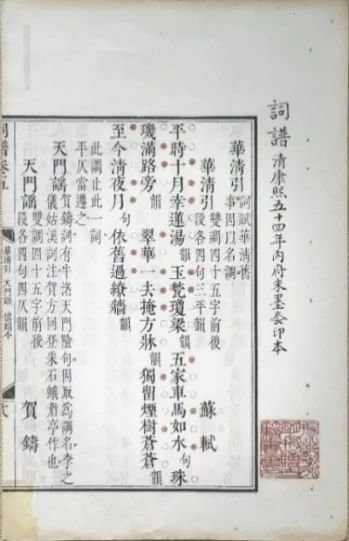 詞譜 清康熙五十四年內府朱墨套印本
華清引 詞賦華清舊
事因以名調
華清引 雙調四十五字前後
段各四句三平韻 蘇軾
平時十月幸蓮湯韻 玉甃瓊梁韻 五家車馬如水句 珠
璣滿路旁韻 翠華一去掩方牀韻 獨留煙樹蒼蒼韻
至今清夜月句 依舊過繚牆韻
此調止此一詞
平仄當遵之
天門謠 賀鑄詞有牛渚天門險句因取為調名李之
儀姑溪詞注賀方回登采石蛾眉亭作也
天門謠 雙調四十五字前後
段各四句四仄韻 賀鑄
華清引 天門謠